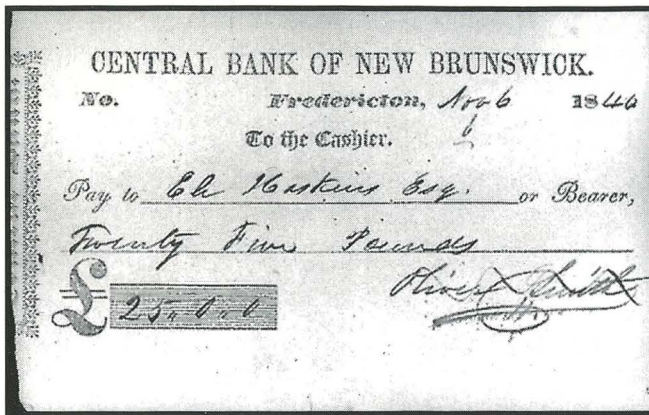 CENTRAL BANK OF NEW BRUNSWICK.
No. Fredericton, Nov 6 1846
6
To the Cashier.
Pay to Eli Haskins Esq. or Bearer,
Twenty Five Pounds
£ 25.0.0
Oliver Smith